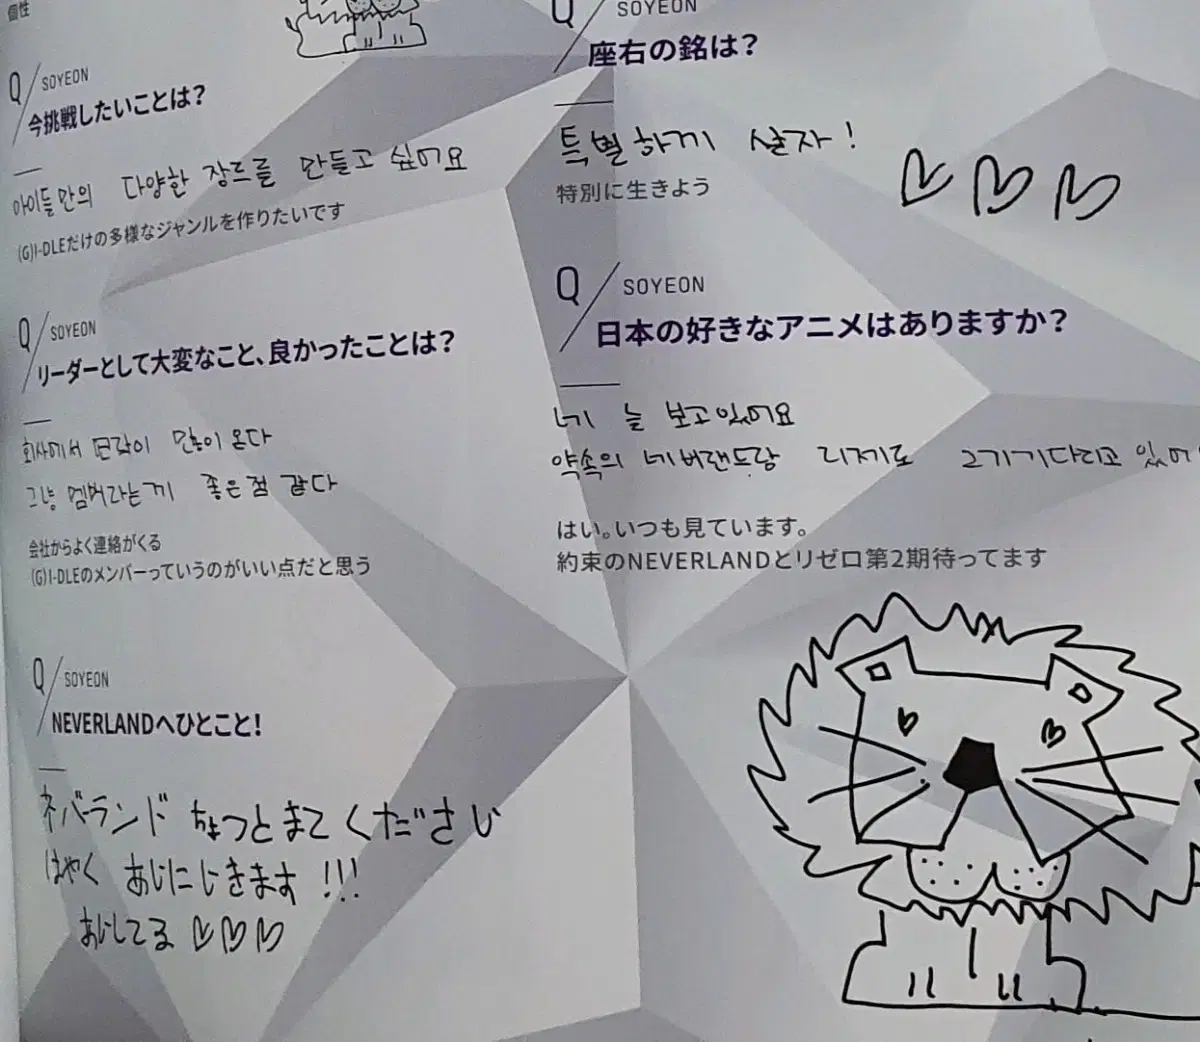 個性
Q/SOYEON
今挑戦したいことは?
아이들만의 다양한 장르를 만들고 싶어요
(G)I-DLEだけの多様なジャンルを作りたいです
Q/SOYEON
リーダーとして大変なこと、良かったことは?
회사에서 연락이 많이 온다
그냥 멤버라는게 좋은점 같다
会社からよく連絡がくる
(G)I-DLEのメンバーっていうのがいい点だと思う
Q/SOYEON
NEVERLANDへひとこと!
ネバーランド ちょっとまてください
はやく あいにいきます !!!
あいしてる ♡♡♡
Q/SOYEON
座右の銘は?
특별하게 살자!
特別に生きよう
♡♡♡
Q/SOYEON
日本の好きなアニメはありますか?
네 늘 보고있어요
약속의 네버랜드랑 리제로 2기 기다리고 있어
はい。いつも見ています。
約束のNEVERLANDとリゼロ第2期待ってます